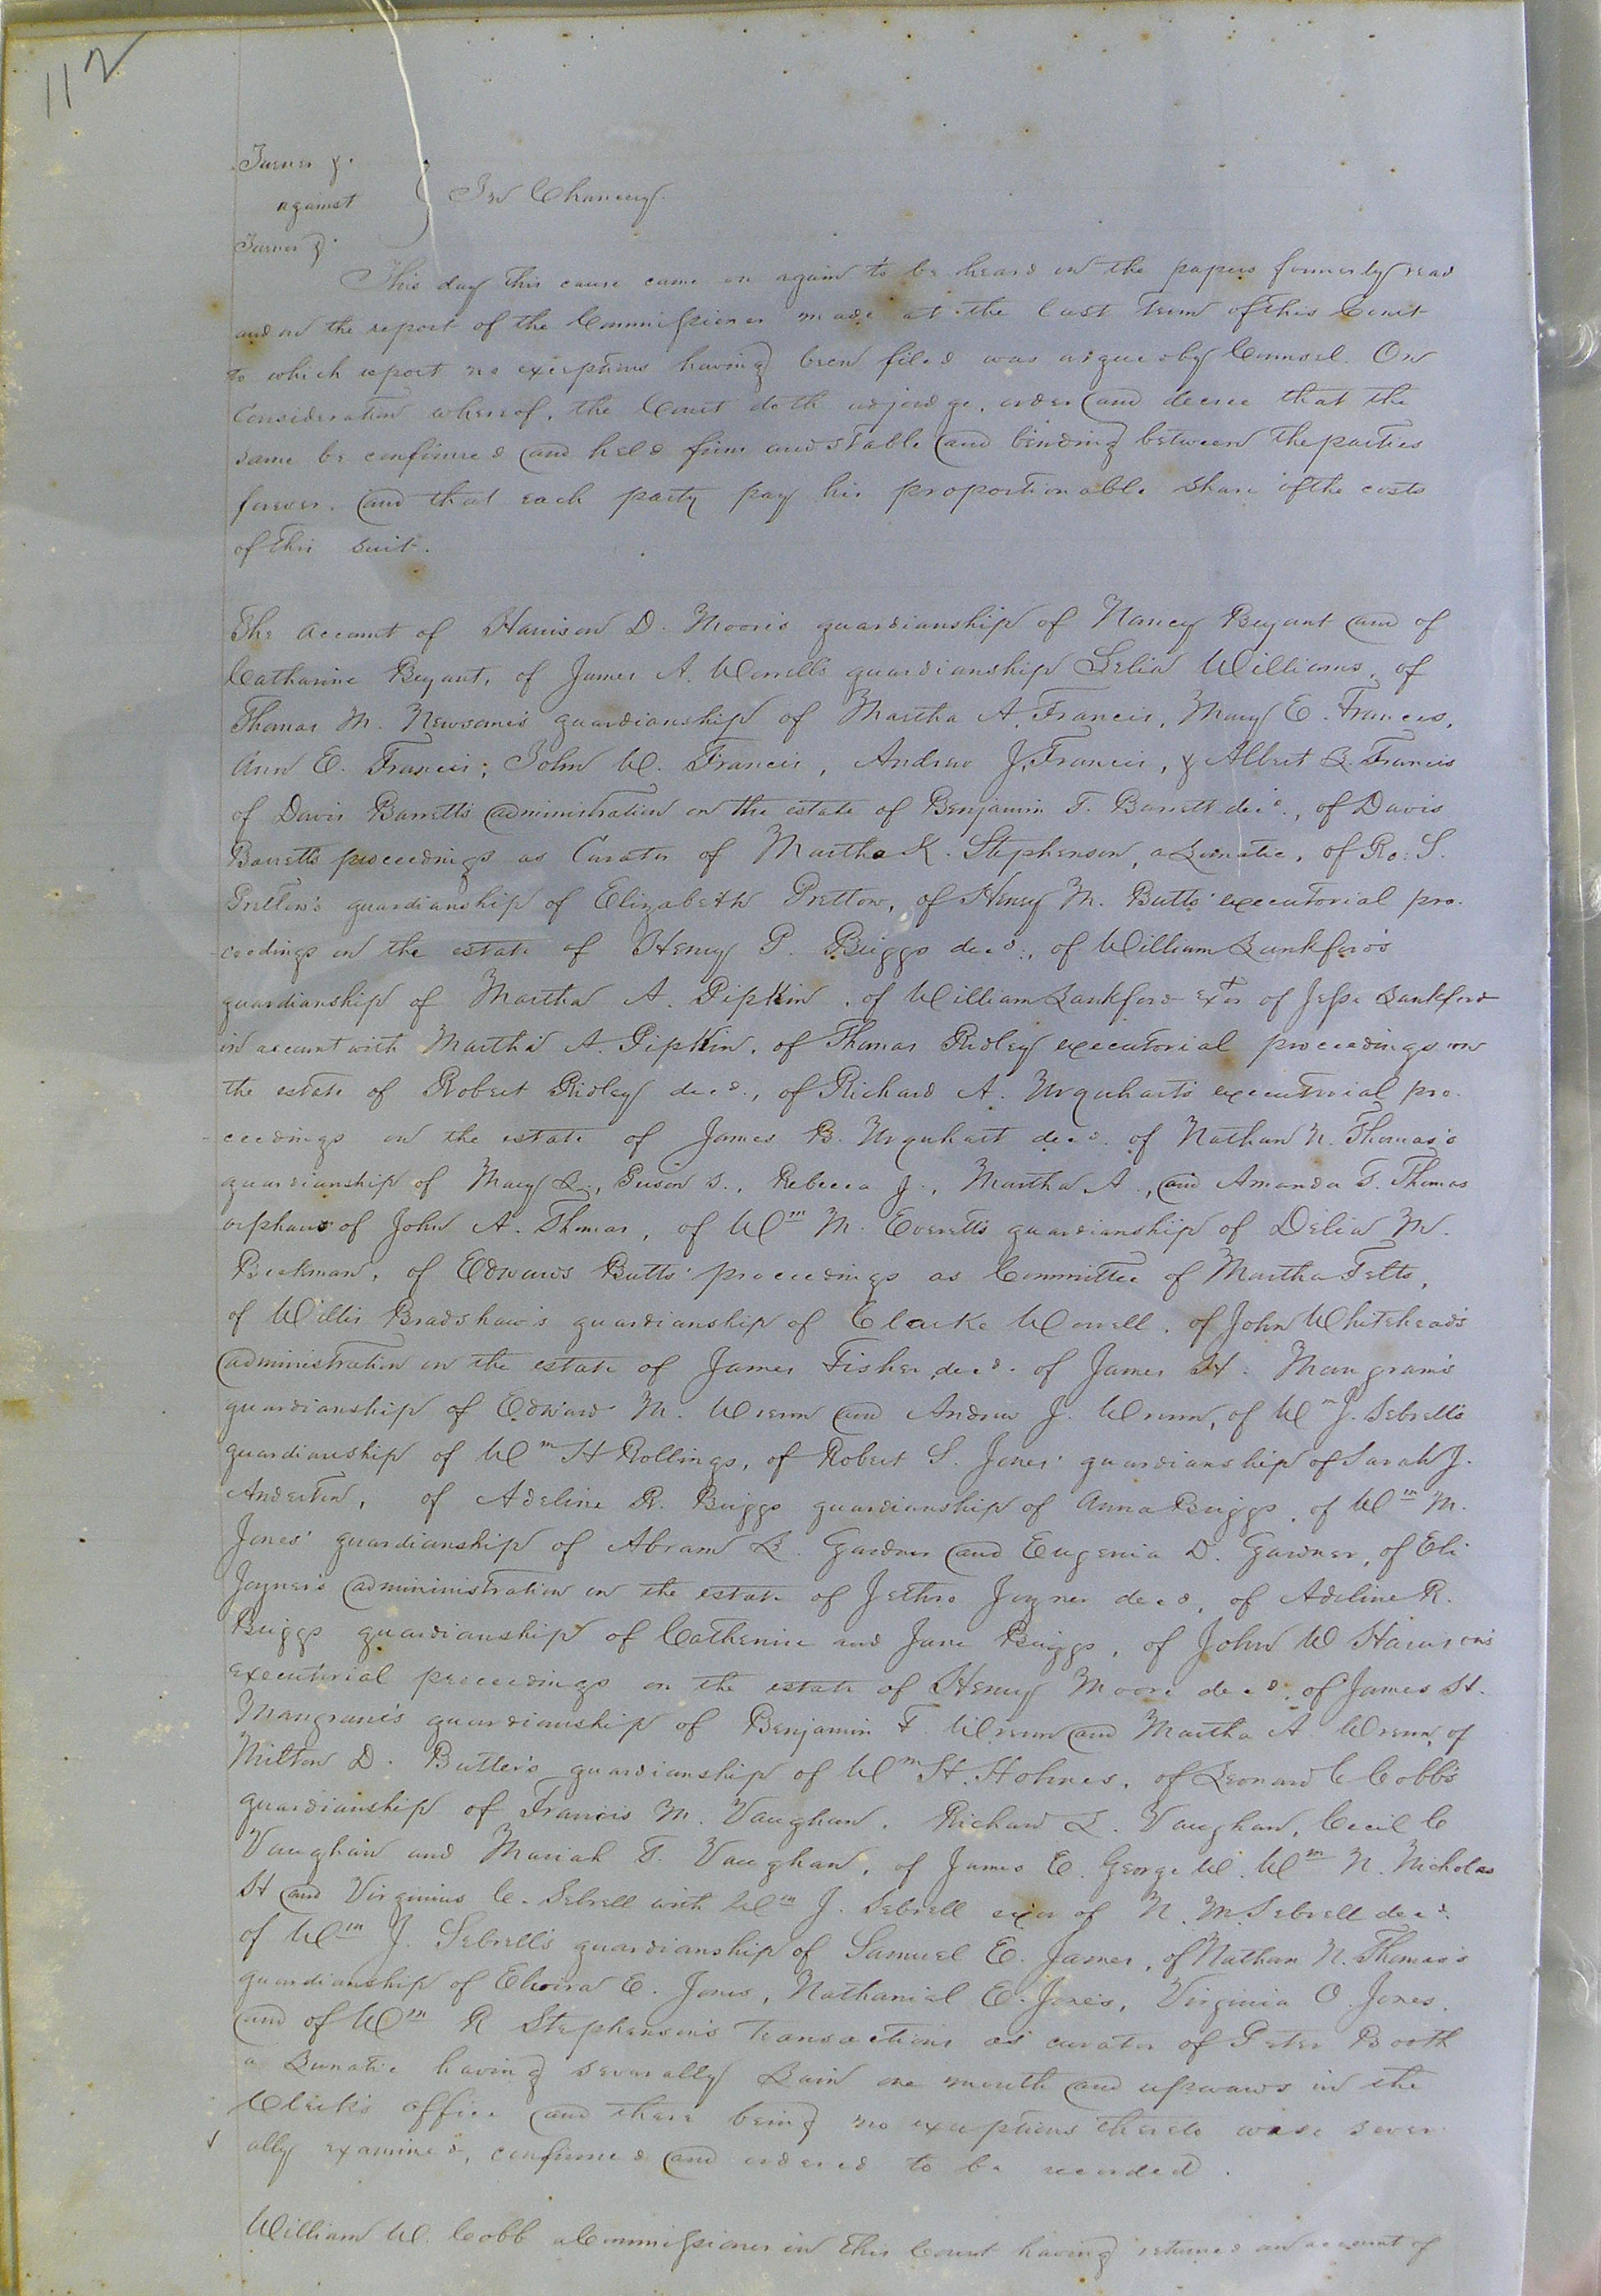 112
Turner &c.
against } In Chancery.
Turner &c.
This day this cause came on again to be heard on the papers formerly read
and on the report of the Commissioner made at the last term of this Court
to which report no exceptions having been filed was argued by Counsel. On
Consideration whereof, the Court doth adjudge, order and decree that the
same be confirmed and held firm and stable and binding between the parties
forever. and that each party pay his proportionable share of the costs
of this suit.
The account of Harrison D. Moore's guardianship of Nancy Bryant and of
Catharine Bryant, of James A. Worrell's guardianship Selia Williams, of
Thomas M. Newsome's guardianship of Martha A. Francis, Mary E. Frances,
Ann E. Francis, John W. Francis, Andrew J. Francis, & Albert L. Francis
of Davis Barrett's administration on the estate of Benjamin T. Barrett decd., of Davis
Barrett's proceedings as Curator of Martha K. Stephenson, a Lunatic, of Ro: S.
Pretlow's guardianship of Elizabeth Pretlow, of Henry M. Butts' executorial pro-
-ceedings on the estate of Henry P. Briggs decd:, of William Lankford's
guardianship of Martha A. Pipkin, of William Lankford extor of Jesse Lankford
in account with Martha A. Pipkin, of Thomas Ridley executorial proceedings on
the estate of Robert Ridley decd., of Richard A. Urquhart's executorial pro-
-ceedings on the estate of James B. Urquhart decd. of Nathan N. Thomas's
guardianship of Mary L., Susan S., Rebecca J., Martha A., and Amanda T. Thomas
orphans of John A. Thomas, of Wm M. Everett's guardianship of Delia M.
Beekman, of Edwards Butts' proceedings as Committee of Martha Felts,
of Willis Bradshaw's guardianship of Clarke Worrell, of John Whitehead's
administration on the estate of James Fisher decd. of James H. Mangram's
guardianship of Edward M. Wrenn and Andrew J. Wrenn, of Wm J. Sebrell's
guardianship of Wm H Rollings, of Robert S. Jones' guardianship of Sarah J.
Anderton, of Adeline R. Briggs guardianship of Anna Briggs, of Wm M.
Jones' guardianship of Abram L. Gardner and Eugenia D. Gardner, of Eli
Joyner's admininistration on the estate of Jethro Joyner decd, of Adeline R.
Briggs guardianship of Catherine and Jane Briggs, of John W Harrison's
executorial proceedings on the estate of Henry Moore decd, of James H.
Mangram's guardianship of Benjamin F. Wrenn and Martha A. Wrenn, of
Milton D. Butler's guardianship of Wm H. Holmes, of Leonard C Cobb's
guardianship of Francis M. Vaughan, Richard L. Vaughan, Cecil C
Vaughan and Mariah T. Vaughan, of James E. George W. Wm N. Nicholas
H and Virginius C. Sebrell with Wm J. Sebrell exor of N. M. Sebrell decd.
of Wm J. Sebrell's guardianship of Samuel E. James, of Nathan N. Thomas's
guardianship of Elvira E. Jones, Nathanial E. Jones, Virginia O. Jones,
and of Wm R Stephenson's transactions as curator of Peter Booth
a Lunatic having severally Lain one month and upwards in the
Clerk's office and there being no exceptions thereto were sever-
ally examined, confirmed and ordered to be recorded.
William W. Cobb a Commissioner in this Court having returned an account of